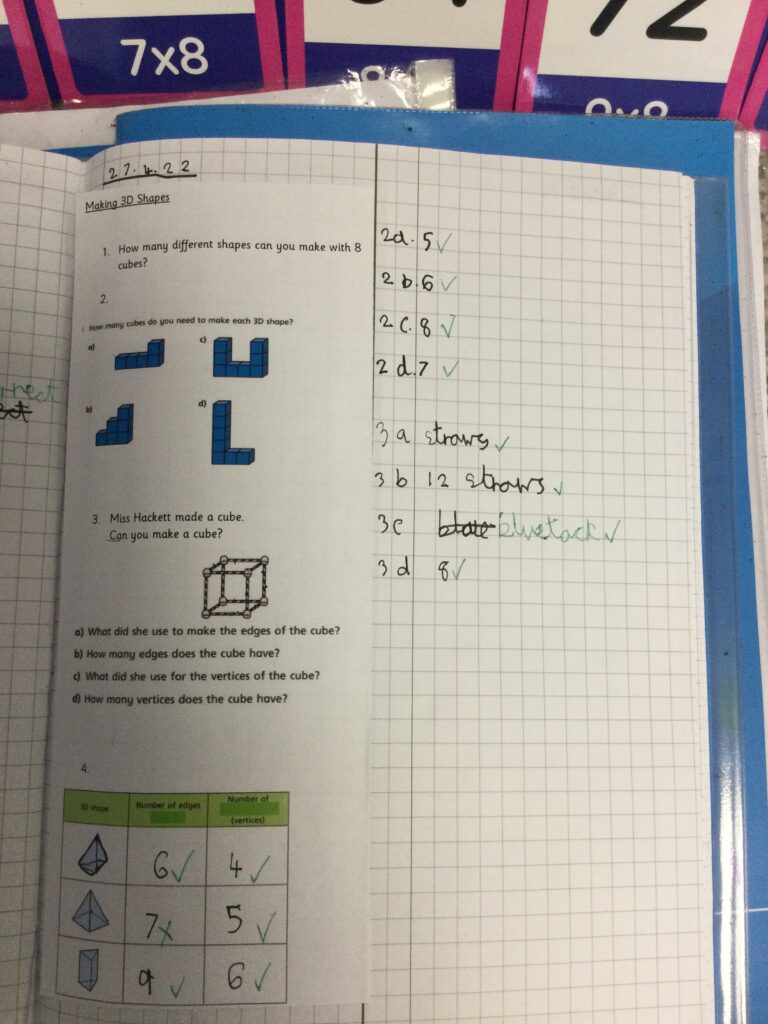 7x8
72
9x8
27.4.22
Making 3D Shapes
1. How many different shapes can you make with 8
cubes?
2.
How many cubes do you need to make each 3D shape?
a)
c)
b)
d)
3. Miss Hackett made a cube.
Can you make a cube?
a) What did she use to make the edges of the cube?
b) How many edges does the cube have?
c) What did she use for the vertices of the cube?
d) How many vertices does the cube have?
4.
3D shape
Number of edges
Number of
(vertices)
6 ✓
4 ✓
7 x
5 ✓
9 ✓
6 ✓
2a. 5 ✓
2 b. 6 ✓
2 c. 8 ✓
2 d. 7 ✓
3 a straws ✓
3 b 12 straws ✓
3c bluetack ✓
3 d 8 ✓